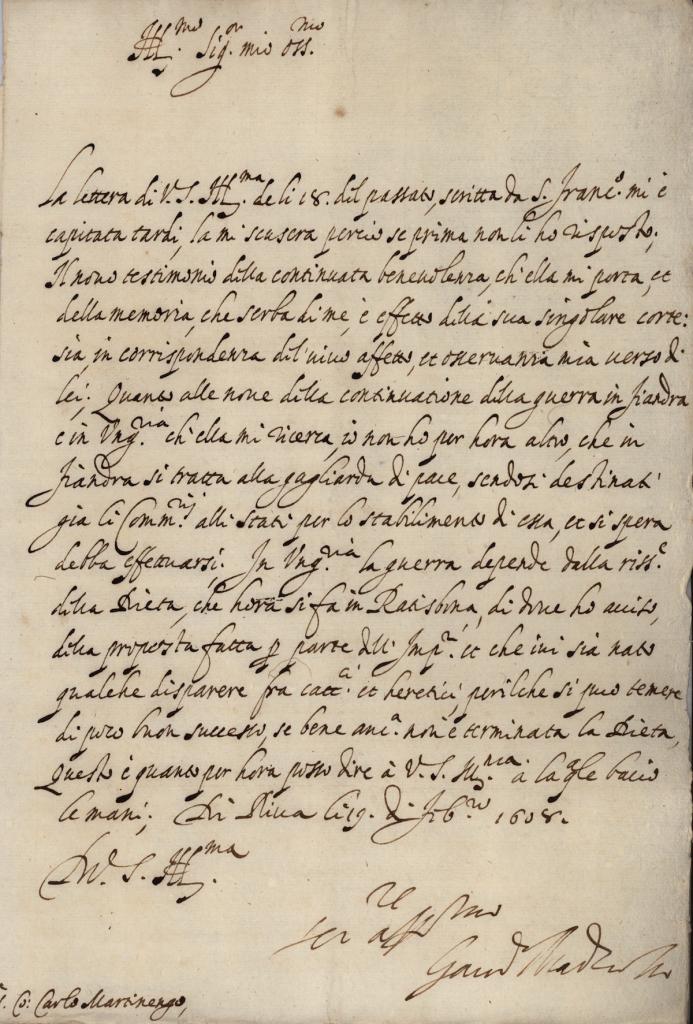 Ill.mo Sig.or mio oss.mo
La lettera di V. S. Ill.ma de li 18. del passato, scritta da S. Franc.o mi è
capitata tardi, la mi scuserà perciò se prima non li ho risposto;
Il novo testimonio della continuata benevolenza, ch'ella mi porta, et
della memoria, che serba di me, è effetto della sua singolare corte:
sia, in corrispondenza del vivo affetto, et osservanza mia verso di
lei; Quanto alle nove della continuatione della guerra in fiandra
e in Ung.ria ch'ella mi ricerca, io non ho per hora altro, che in
fiandra si tratta alla gagliarda di pace, sendosi destinati
già li Comm.rij alli stati per lo stabilimento di essa, et si spera
debba effettuarsi. In Ung.ria la guerra depende dalla riss.e
della Dieta, che hora si fa in Ratisbona, di dove ho aviso,
della proposta fatta p parte dell' Imp.re et che ivi sia nato
qualche disparere fra catt.ci et heretici, perilche si puo temere
di poco buon successo, se bene anc.a non è terminata la Dieta,
Questo è quanto per hora posso dire à V. S. Ill.ma a la qle bacio
le mani; Di Riva li 19. di Feb.ro 1608.
Di V. S. Ill.ma
ser.re aff.mo
Gaud Madruzzo
S. Co: Carlo Martinengo,